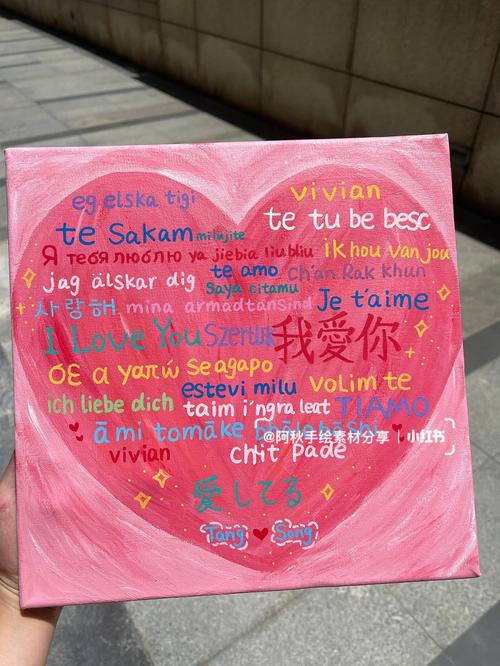 eg elska tigi
vivian
te tu be besc
te Sakam milujite
Я тебя люблю ya jiebia liubliu ik hou vanjou
jag älskar dig te amo Ch'an Rak Khun
gaya citamu
사랑해 mina armadtansind Je t'aime
I Love You Szertlk 我愛你
σε α γαπώ se agapo
estevi milu volim te
ich liebe dich taim i'ngra leat TIAMO
āmi tomāke bhālobāshi
@阿秋手绘素材分享 | 小红书
vivian chit pade
愛してる
Tang Song